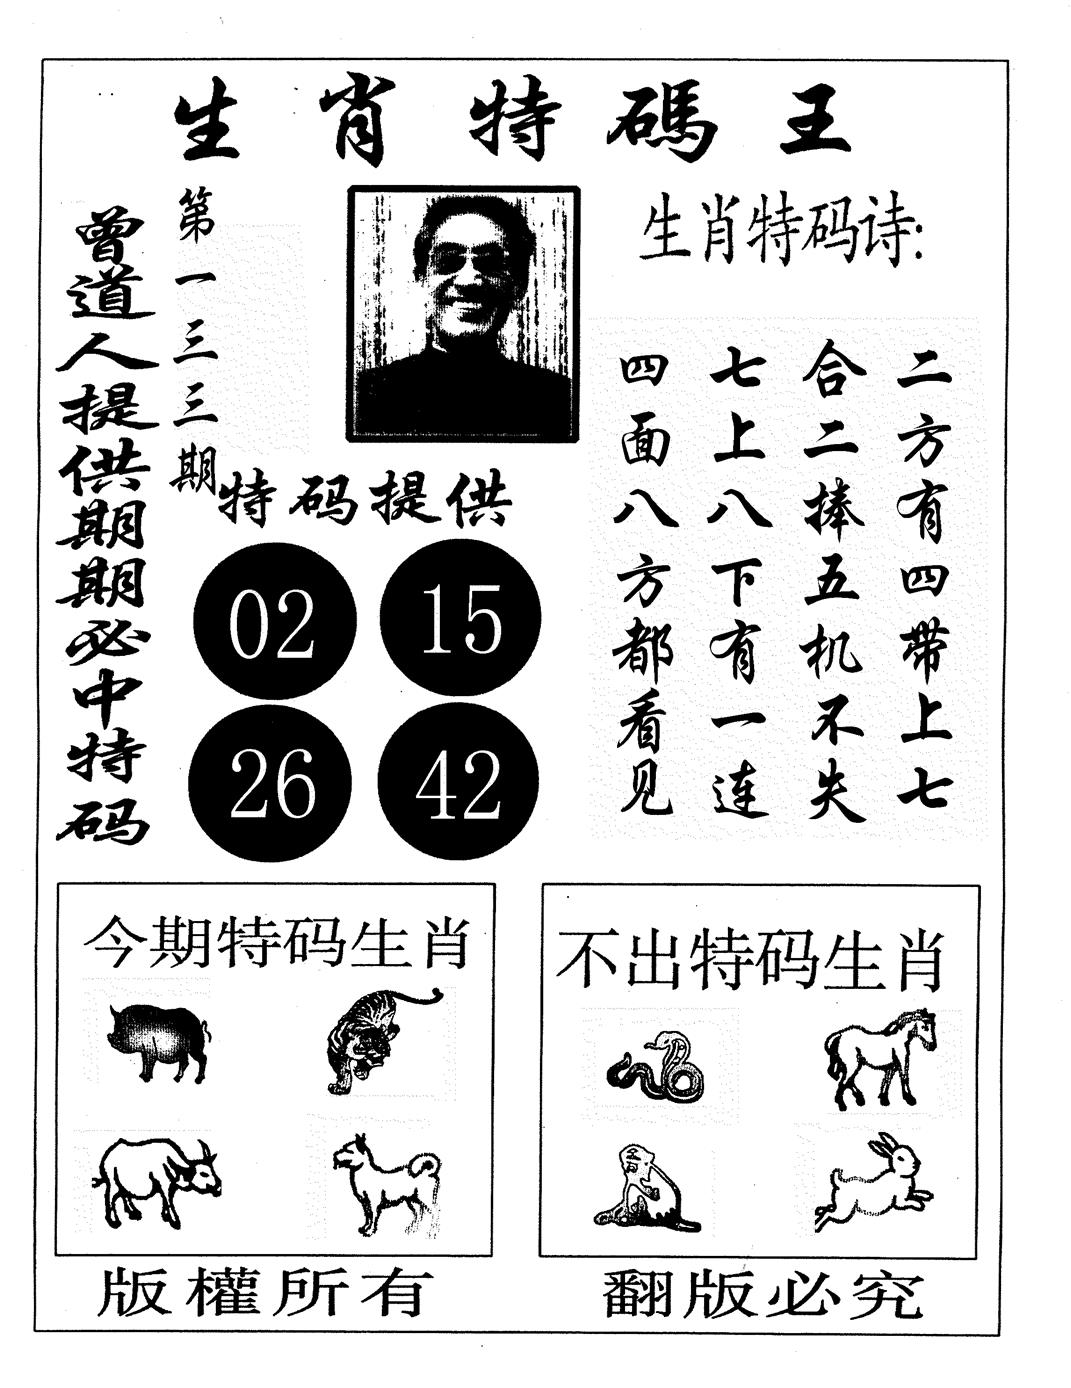 生肖特碼王
曾道人提供期期必中特码
第一三三期
生肖特码诗:
二方有四带上七
合二捧五机不失
七上八下有一连
四面八方都看见
特码提供
02 15
26 42
今期特码生肖
不出特码生肖
版權所有
翻版必究